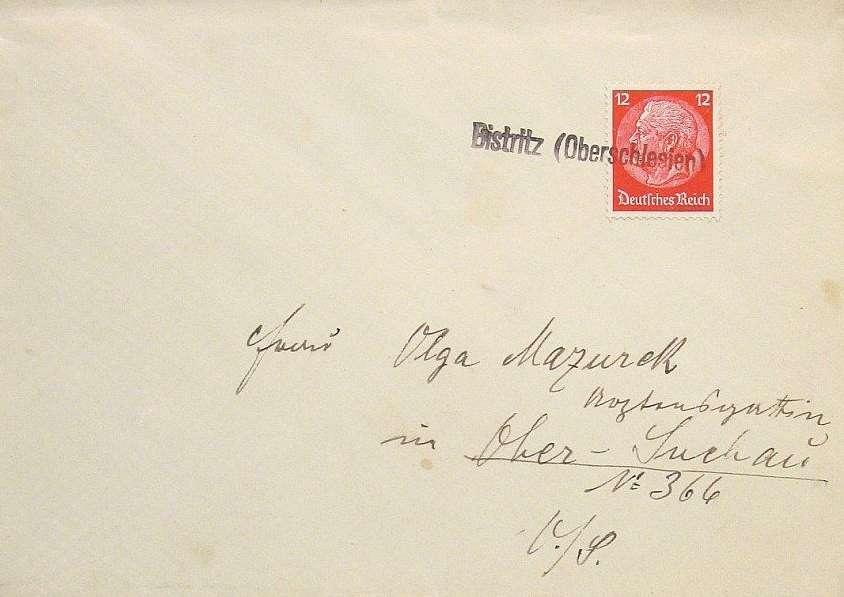 12 12
Bistritz (Oberschlesien)
Deutsches Reich
Frau Olga Mazurek
in Ober-Suchau
Nº 366
O./S.